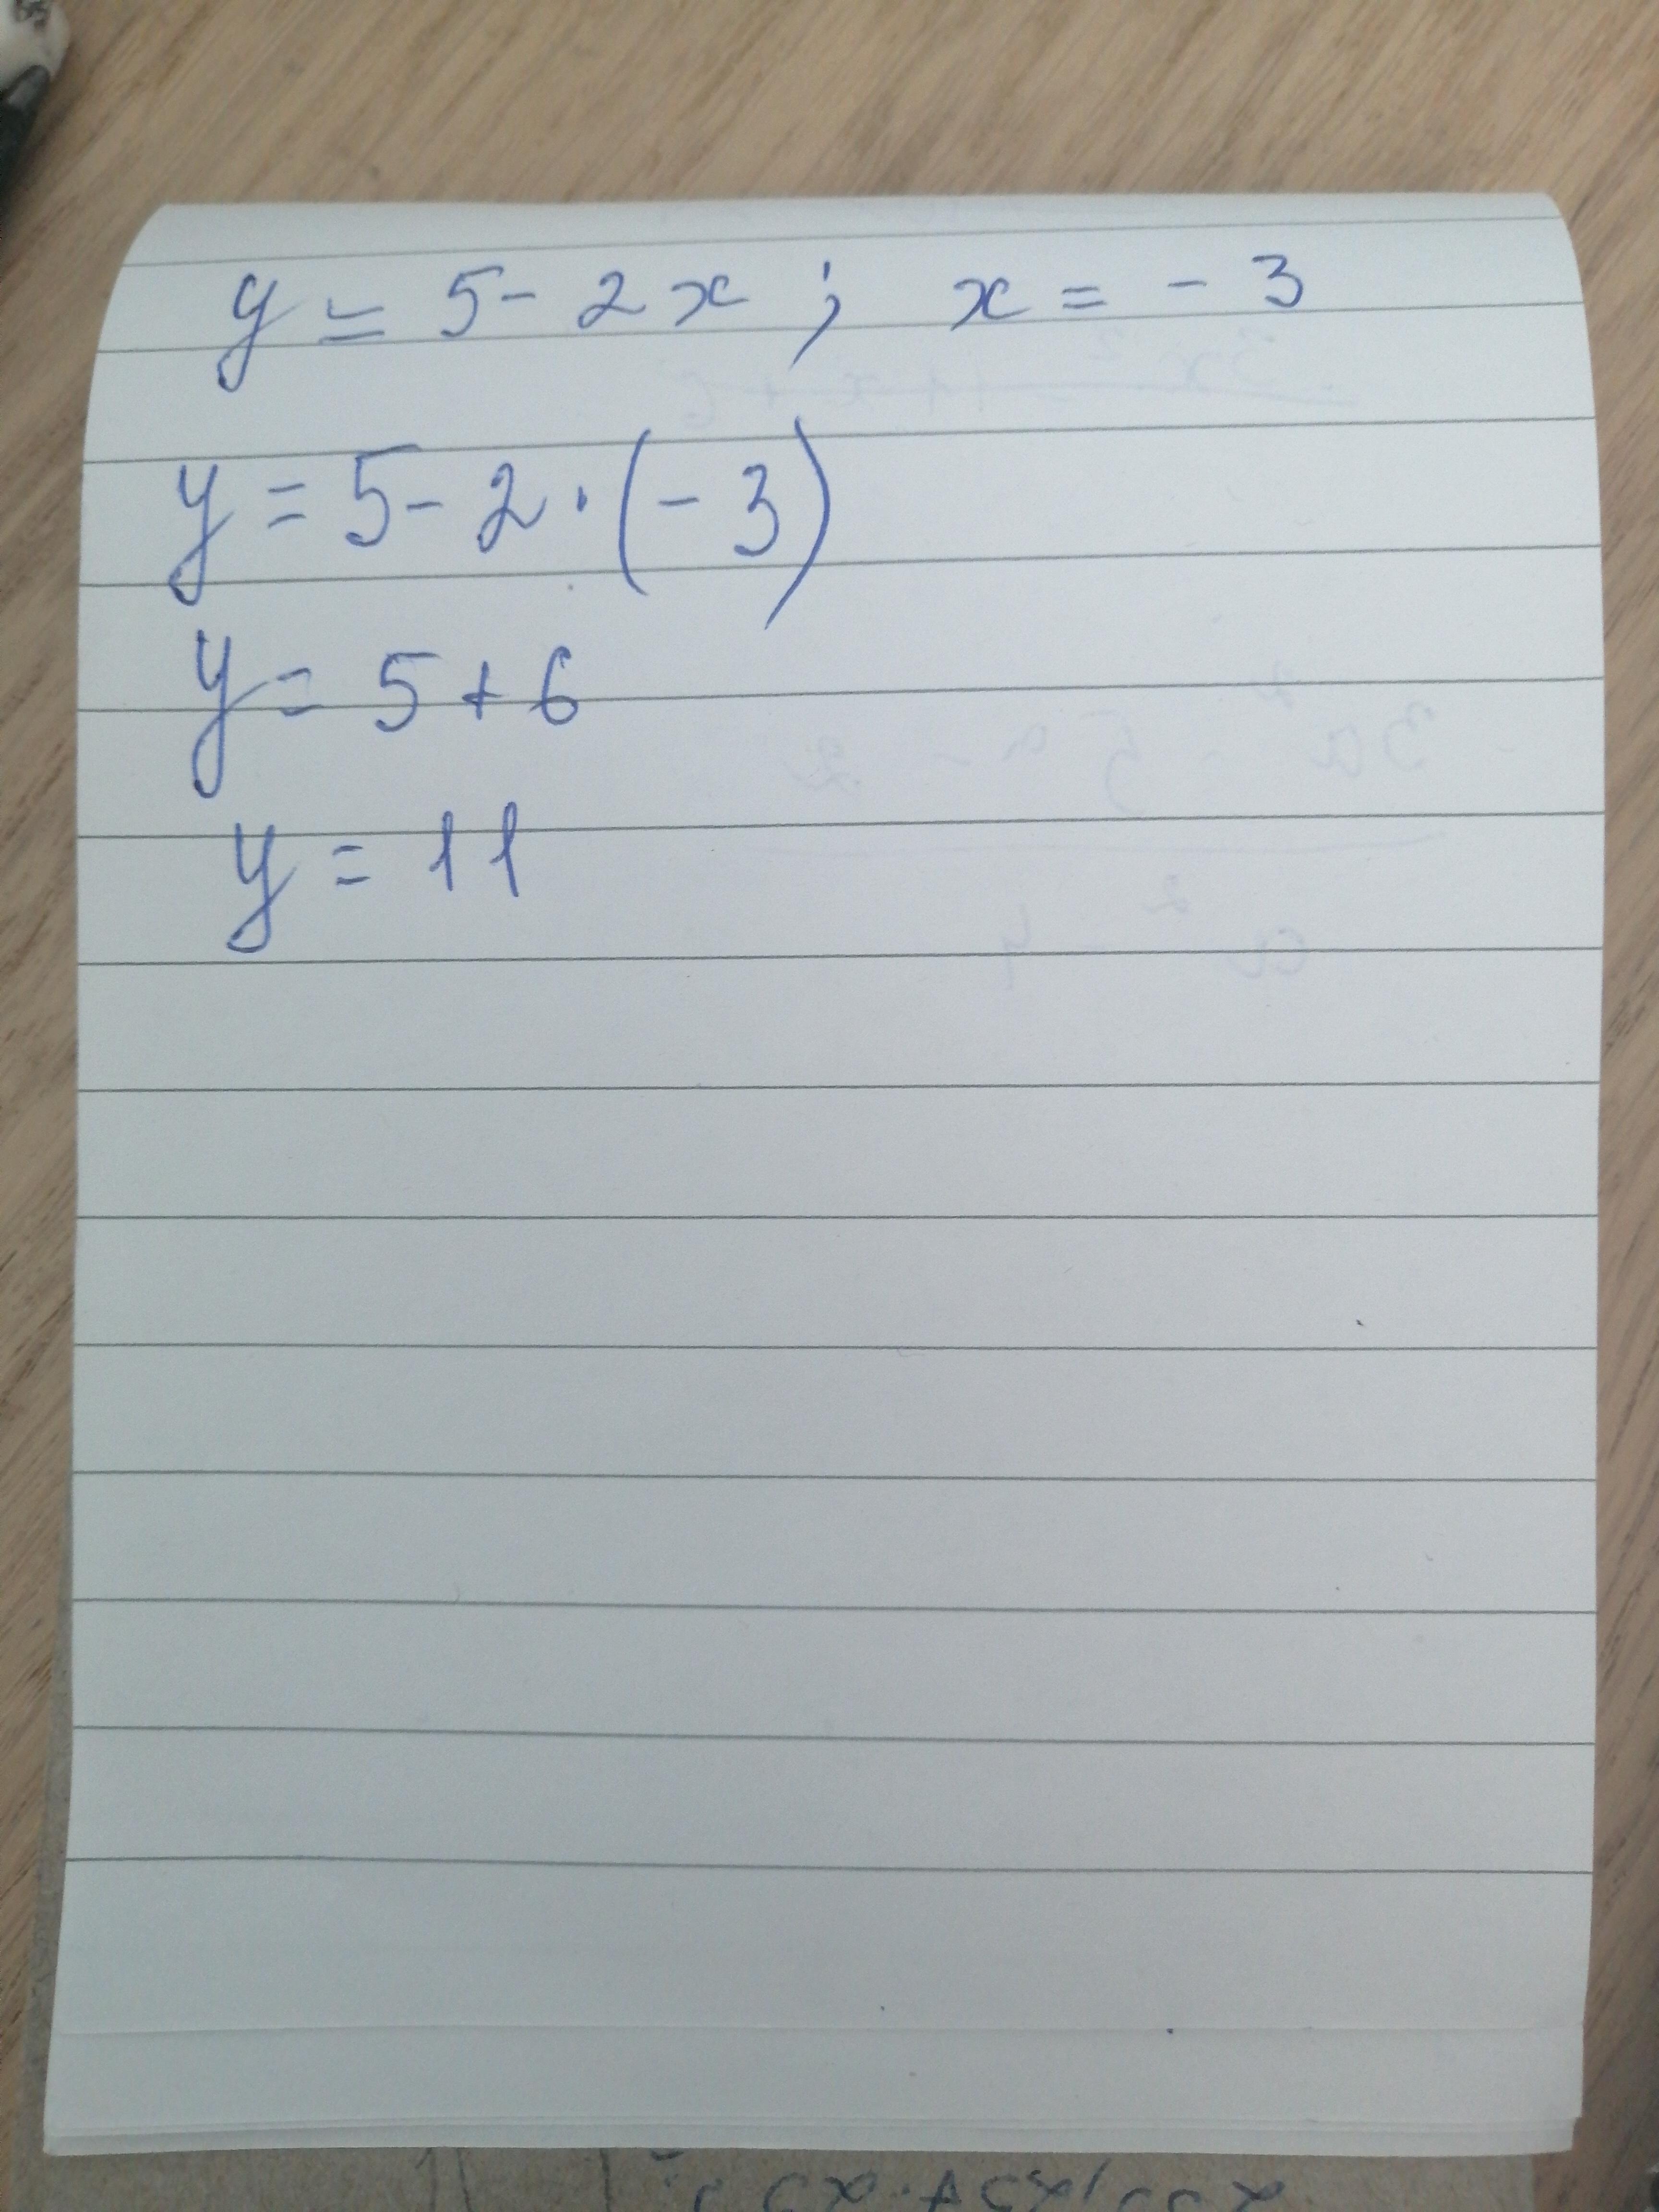 y = 5 - 2x ; x = - 3
y = 5 - 2 · (- 3)
y = 5 + 6
y = 11